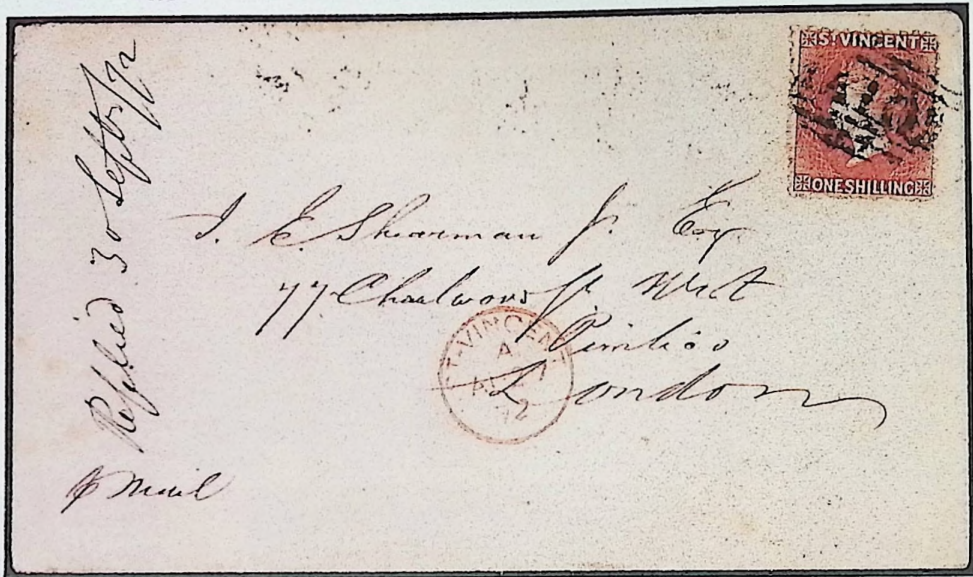 ST VINCENT
ONE SHILLING
Replied 30 Septbr/72
J. E. Shearman Jr. Esq
77 Charlwood St. West
Pimlico
London
ST-VINCENT
A
72
p mail